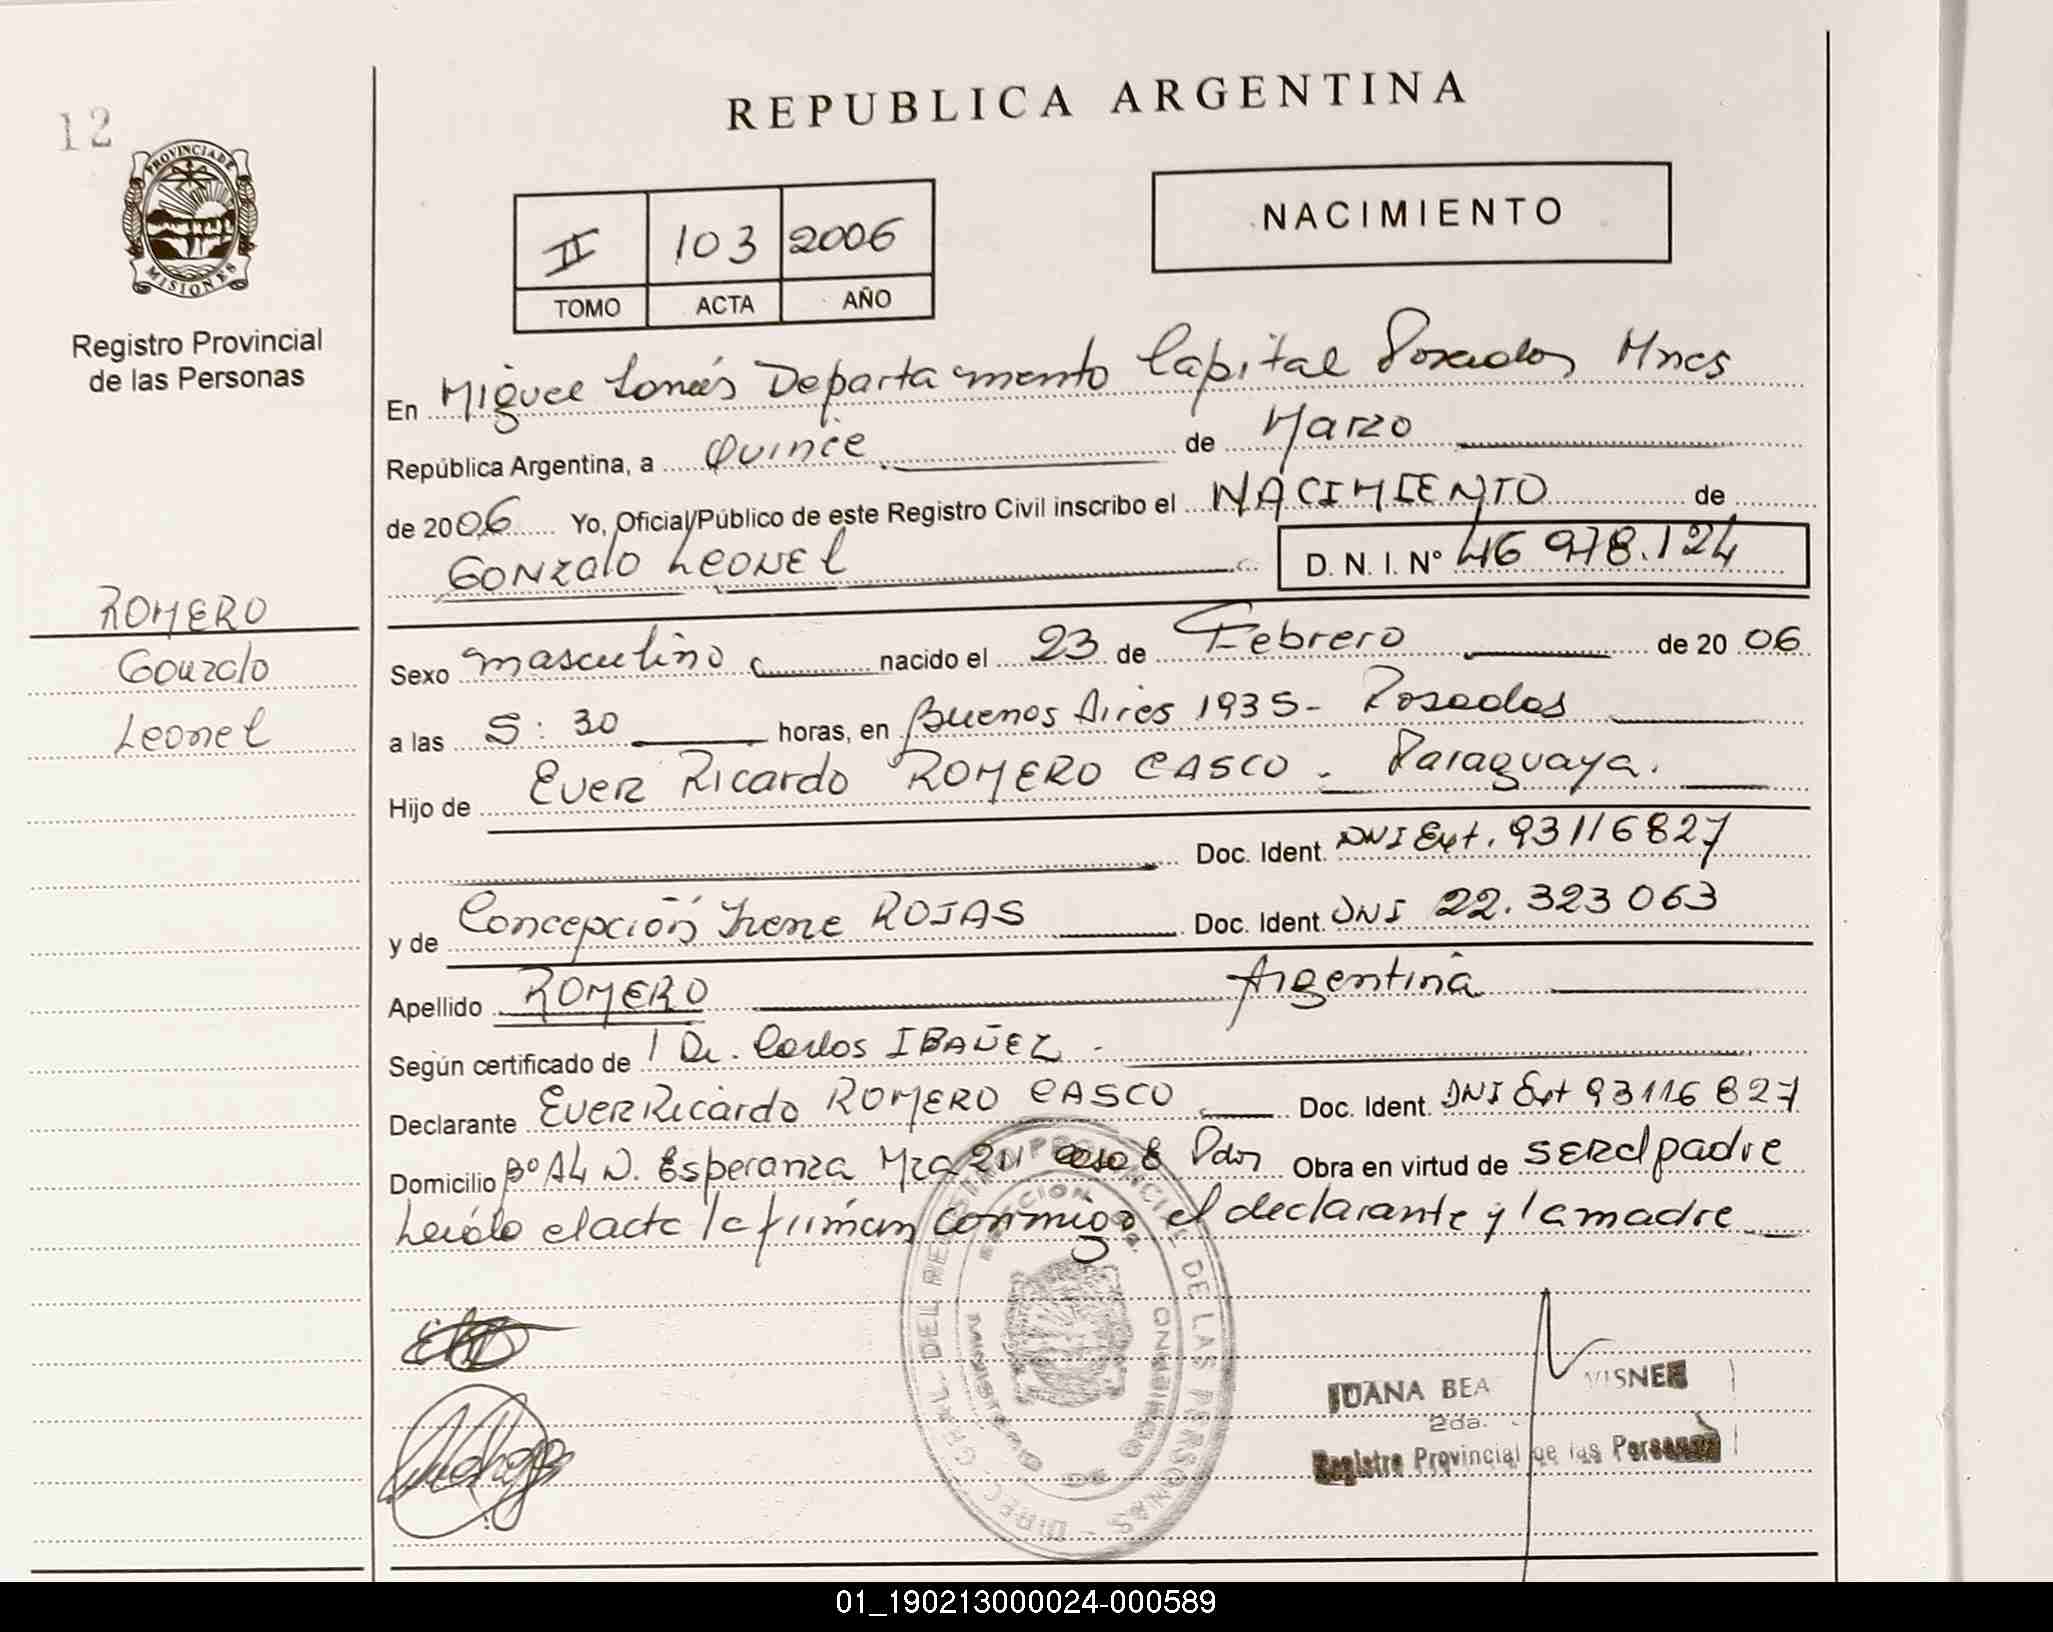 12
REPUBLICA ARGENTINA
PROVINCIA DE
MISIONES
Registro Provincial
de las Personas
II 103 2006
TOMO ACTA AÑO
NACIMIENTO
En Miguel Lanús Departamento Capital Posadas Mnes
República Argentina, a Quince de Marzo
de 2006 Yo, Oficial Público de este Registro Civil inscribo el NACIMIENTO de
GONZALO LEONEL D. N. I. N° 46 978.124
ROMERO
Gonzalo
Leonel
Sexo masculino nacido el 23 de Febrero de 20 06
a las 5:30 horas, en Buenos Aires 1935- Posadas
Hijo de Ever Ricardo ROMERO CASCO. Paraguaya.
Doc. Ident. DNI Ext. 93116827
y de Concepción Irene ROJAS Doc. Ident. DNI 22.323 063
Apellido ROMERO Argentina
Según certificado de Dr. Carlos IBAÑEZ -
Declarante Ever Ricardo ROMERO CASCO Doc. Ident. DNI Ext 93116827
Domicilio B° A4 N. Esperanza Mza casa 8 Pdas Obra en virtud de ser el padre
Leído el acta la firman conmigo el declarante y la madre
DIREC. GRAL. DEL REGISTRO PROVINCIAL DE LAS PERSONAS
JUANA BEA
2da.
Registro Provincial de las Personas
01_190213000024-000589